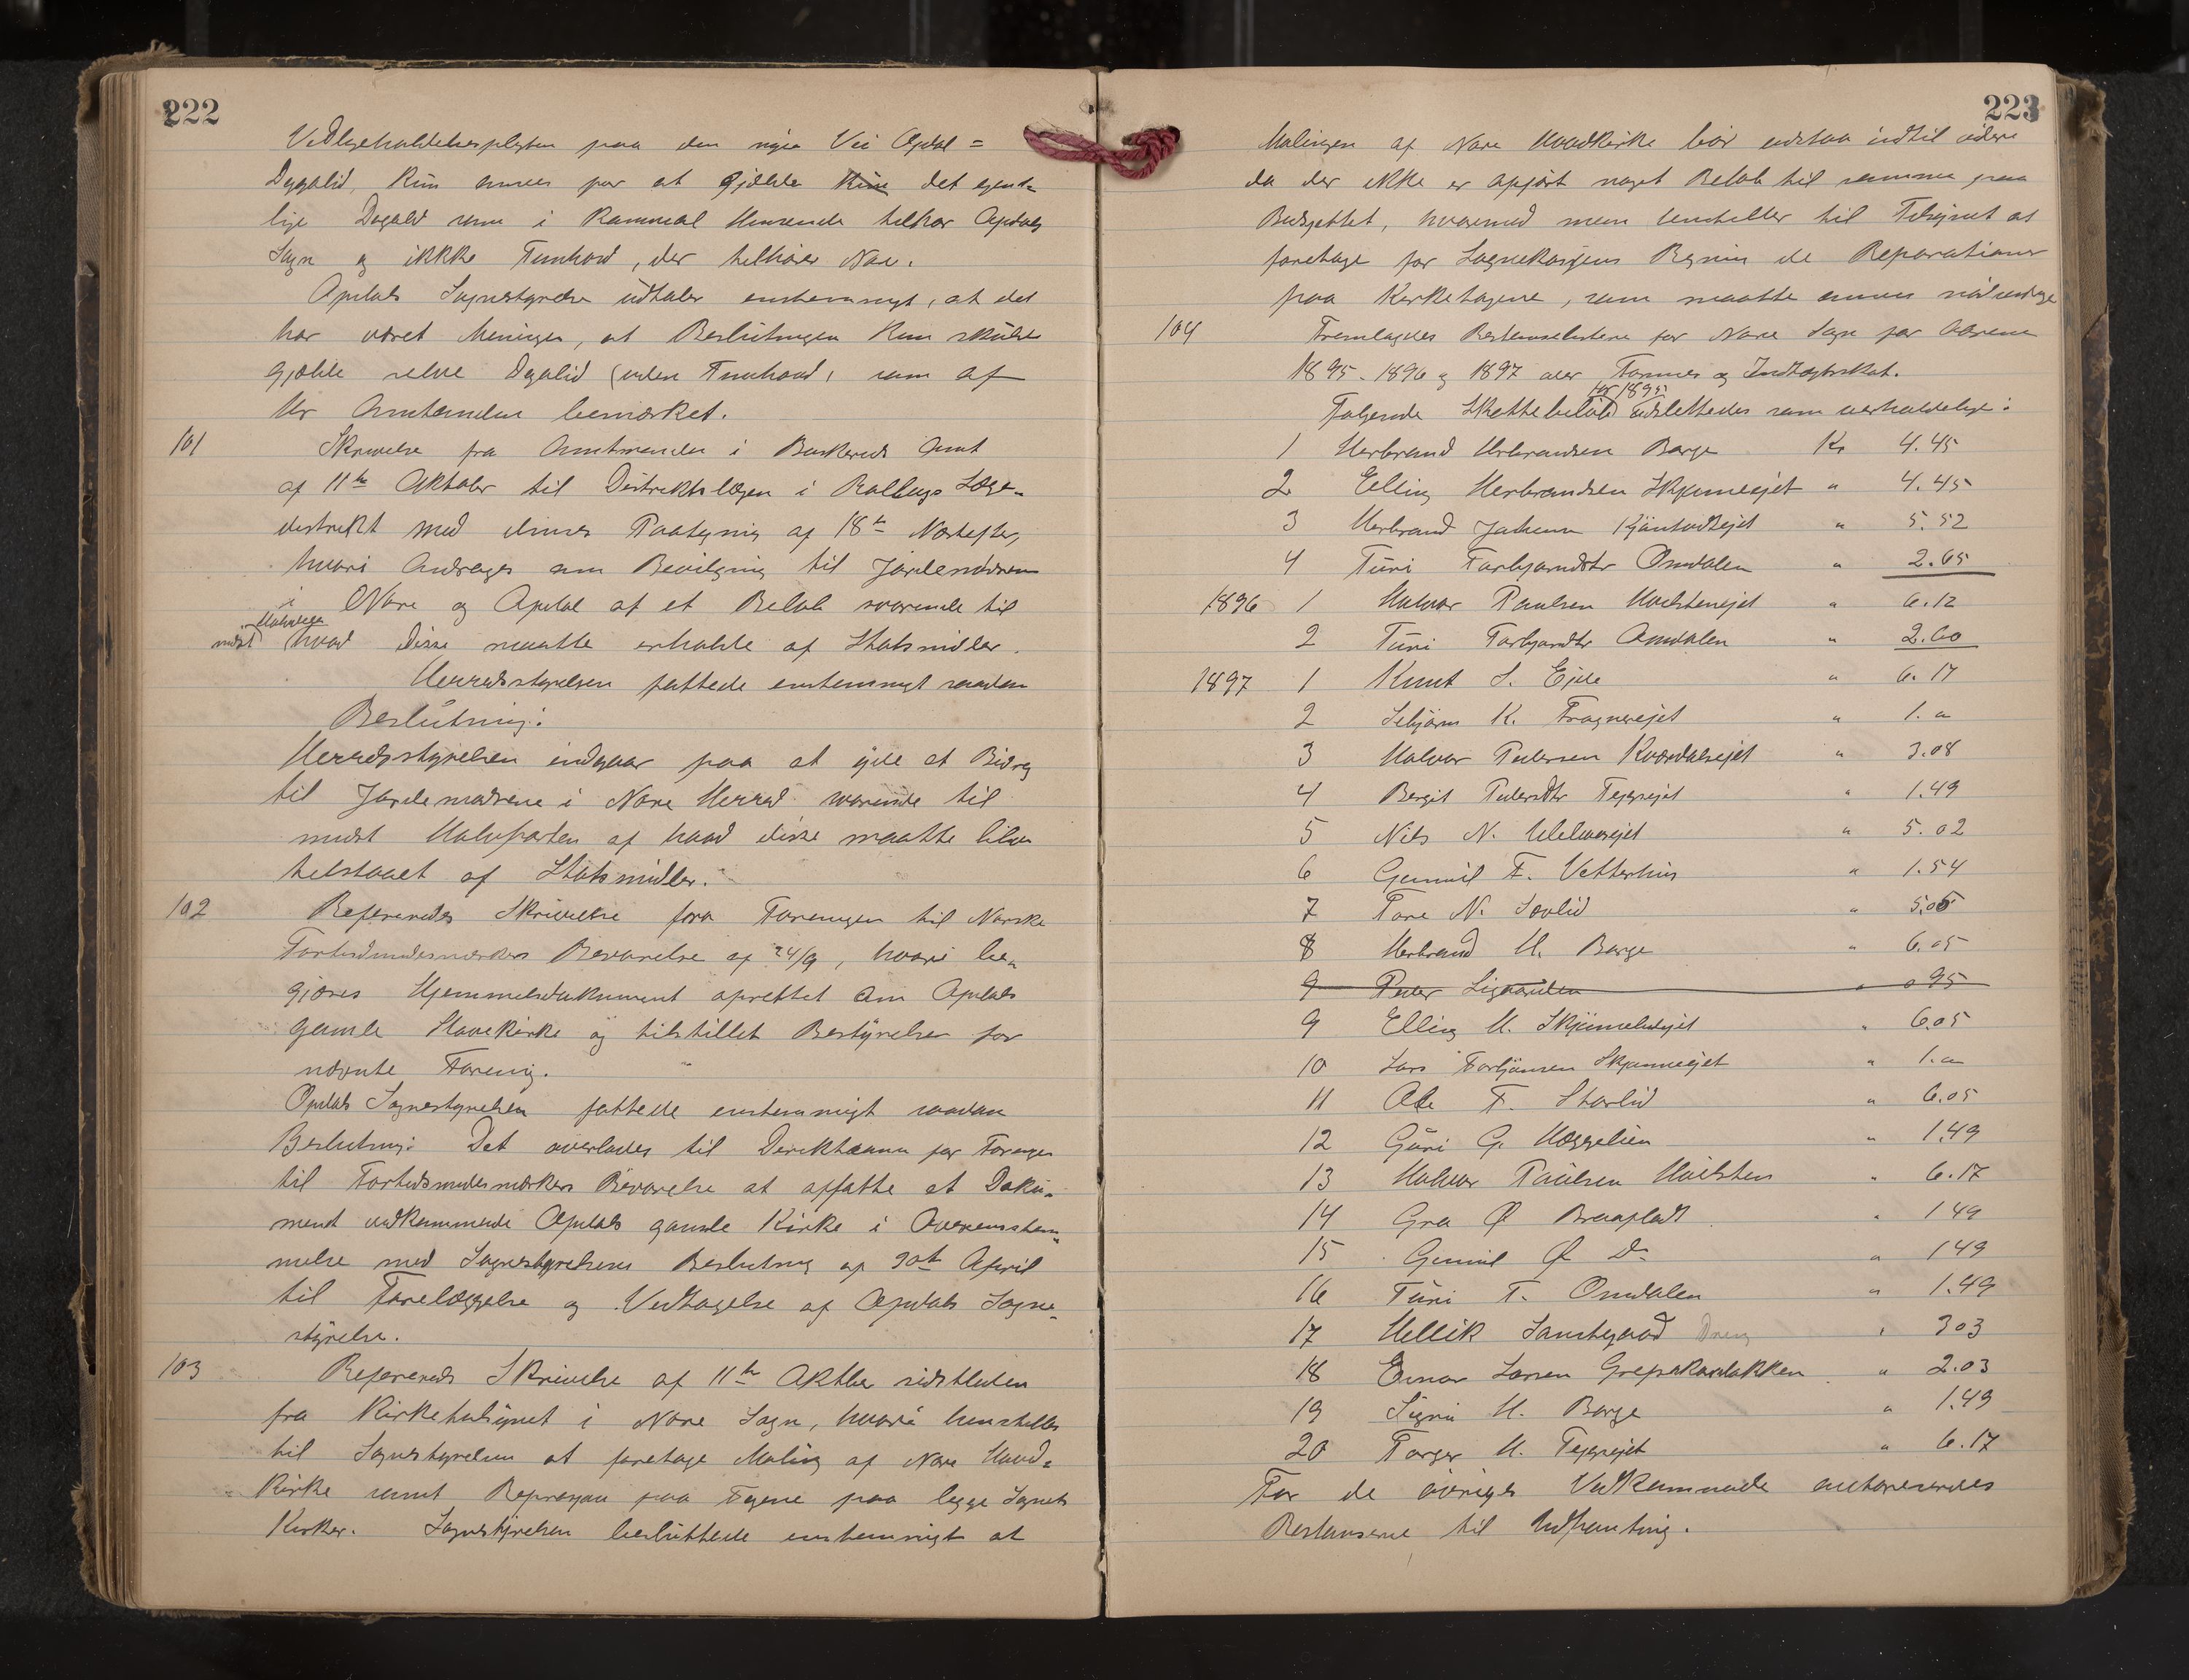 222
Vedligeholdelsespligten paa den nye Vei Opdal=
Dagalid, kun ansees for at gjælde kun det egent-
lige Dagalid som i Rammeal Henseende tilhør Opdals
Sogn og ikkke Tunhovd, der tilhører Nore.
Opdals Sognestyrelse udtaler enstemmigt, at det
har været Meningen, at Beslutningen kun skulde
gjælde selve Dagalid (uden Tunhovd) som af
Hr Amtmanden bemærket.
101 Skrivelse fra Amtmanden i Buskeruds Amt
af 11te Oktober til Distriktslægen i Rollags Læge-
distrikt med dennes Paategning af 18de Næstefter,
hvori Andrages om Bevilgning til Jordemødrene
i Nore og Opdal af et Beløb svarende til
mindst Halvdelen hvad disse maatte erholde af Statsmidler.
Herredsstyrelsen fattede enstemmigt saadan
Beslutning:
Herredsstyrelsen indgaar paa at yde et Bidrag
til Jordemødrene i Nore Herred svarende til
mindst Halvparten af hvad disse maatte blive
tilstaaet af Statsmidler.
102 Refereredes Skrivelse fra Foreningen til Norske
Fortidsmindesmærkers Bevarelse af 24/9, hvori be-
gjæres Hjemmelsdokument oprettet om Opdals
gamle Stavekirke og tilstillet Bestyrelsen for
nævnte Forening.
Opdals Sognestyrelsen fattede enstemmigt saadan
Beslutning: Det overlades til Direktionen for Foreningen
til Fortidsmindesmærkers Bevarelse at affatte et Doku-
ment vedkommende Opdals gamle Kirke i Overensstem-
melse med Sognestyrelsens Beslutning af 30te April
til Forelæggelse og Vedtagelse af Opdals Sogne-
styrelse.
103 Refereredes Skrivelse af 11te Oktber sidstleden
fra Kirketilsynet i Nore Sogn, hvori henstilles
til Sognestyrelsen at foretage Maling af Nore Hoved-
kirke samt Reprasjon paa Tagene paa begge Sognets
Kirker. Sognestyrelsen besluttede enstemmigt at
223
Malingen af Nore Hovedkirke bør udstaa indtil videre
da der ikke er opført noget Beløb til samme paa
Budgettet, hvorimod man henstiller til Tilsynet at
foretage for Sognekassens Regning de Reparationer
paa Kirketagene, som maatte ansees nødvendige
104 Fremlagdes Restanselisterne for Nore Sogn for Aarene
1895-1896 og 1897 over Formues og Indtægtsskat.
Følgende Skattebeløb for 1895 udslettedes som uerholdelige:
1 Herbrand Herbrandsen Borge Kr 4.45
2 Elling Herbrandsen Skjønneiejet " 4.45
3 Herbrand " 5.52
4 Turi Torbjørndtr Omdalen " 2.65
1896 1 Halvor Paulsen " 6.12
2 Turi Torbjørndtr Omdalen " 2.60
1897 1 Knut S. Eide " 6.17
2 K. Fragnereiet " 1.a
3 Halvor Pedersen Kværdalseiet " 3.08
4 Bergit Pedersdtr " 1.49
5 Nils N. " 5.02
6 Gunnil T. Vetterhus " 1.54
7 Tore N. Sovlid " 5,05
8 Herbrand H. Borge " 6.05
9 Peder " 0 95
9 Elling H. " 6.05
10 Lars Torbjørnsen Skjønneeiet " 1.a
11 Ole T. Storlid " 6.05
12 Guri G. Heggelien " 1,49
13 Halvor Paulsen " 6.17
14 Gro Ø Braaplads " 1 49
15 Gunnil Ø Do " 1 49
16 Turi T. Omdalen " 1.49
17 Hellik Dreng " 303
18 Einar Larsen " 2.03
19 Signi H. Borge " 1.49
20 Torger H. " 6.17
For de øvriges Vedkommende autoriseredes
Restanserne til Udpantning.